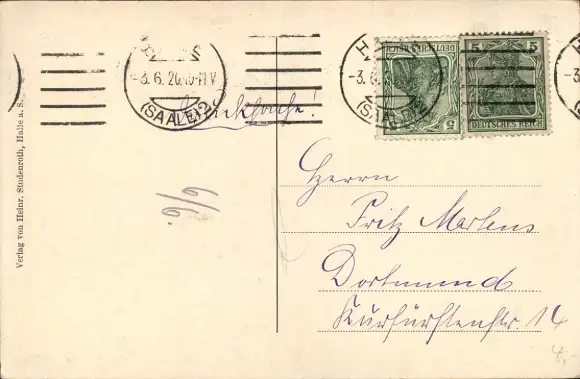 HALLE
-3.6.20.10-11V
(SAALE) 2
DEUTSCHES REICH
5
5 5
DEUTSCHES REICH
Drucksache!
Herrn
Fritz Martens
Dortmund
Kurfürstenstr 14
6/6.
4,-
Verlag von Heinr. Studenroth, Halle a. S.